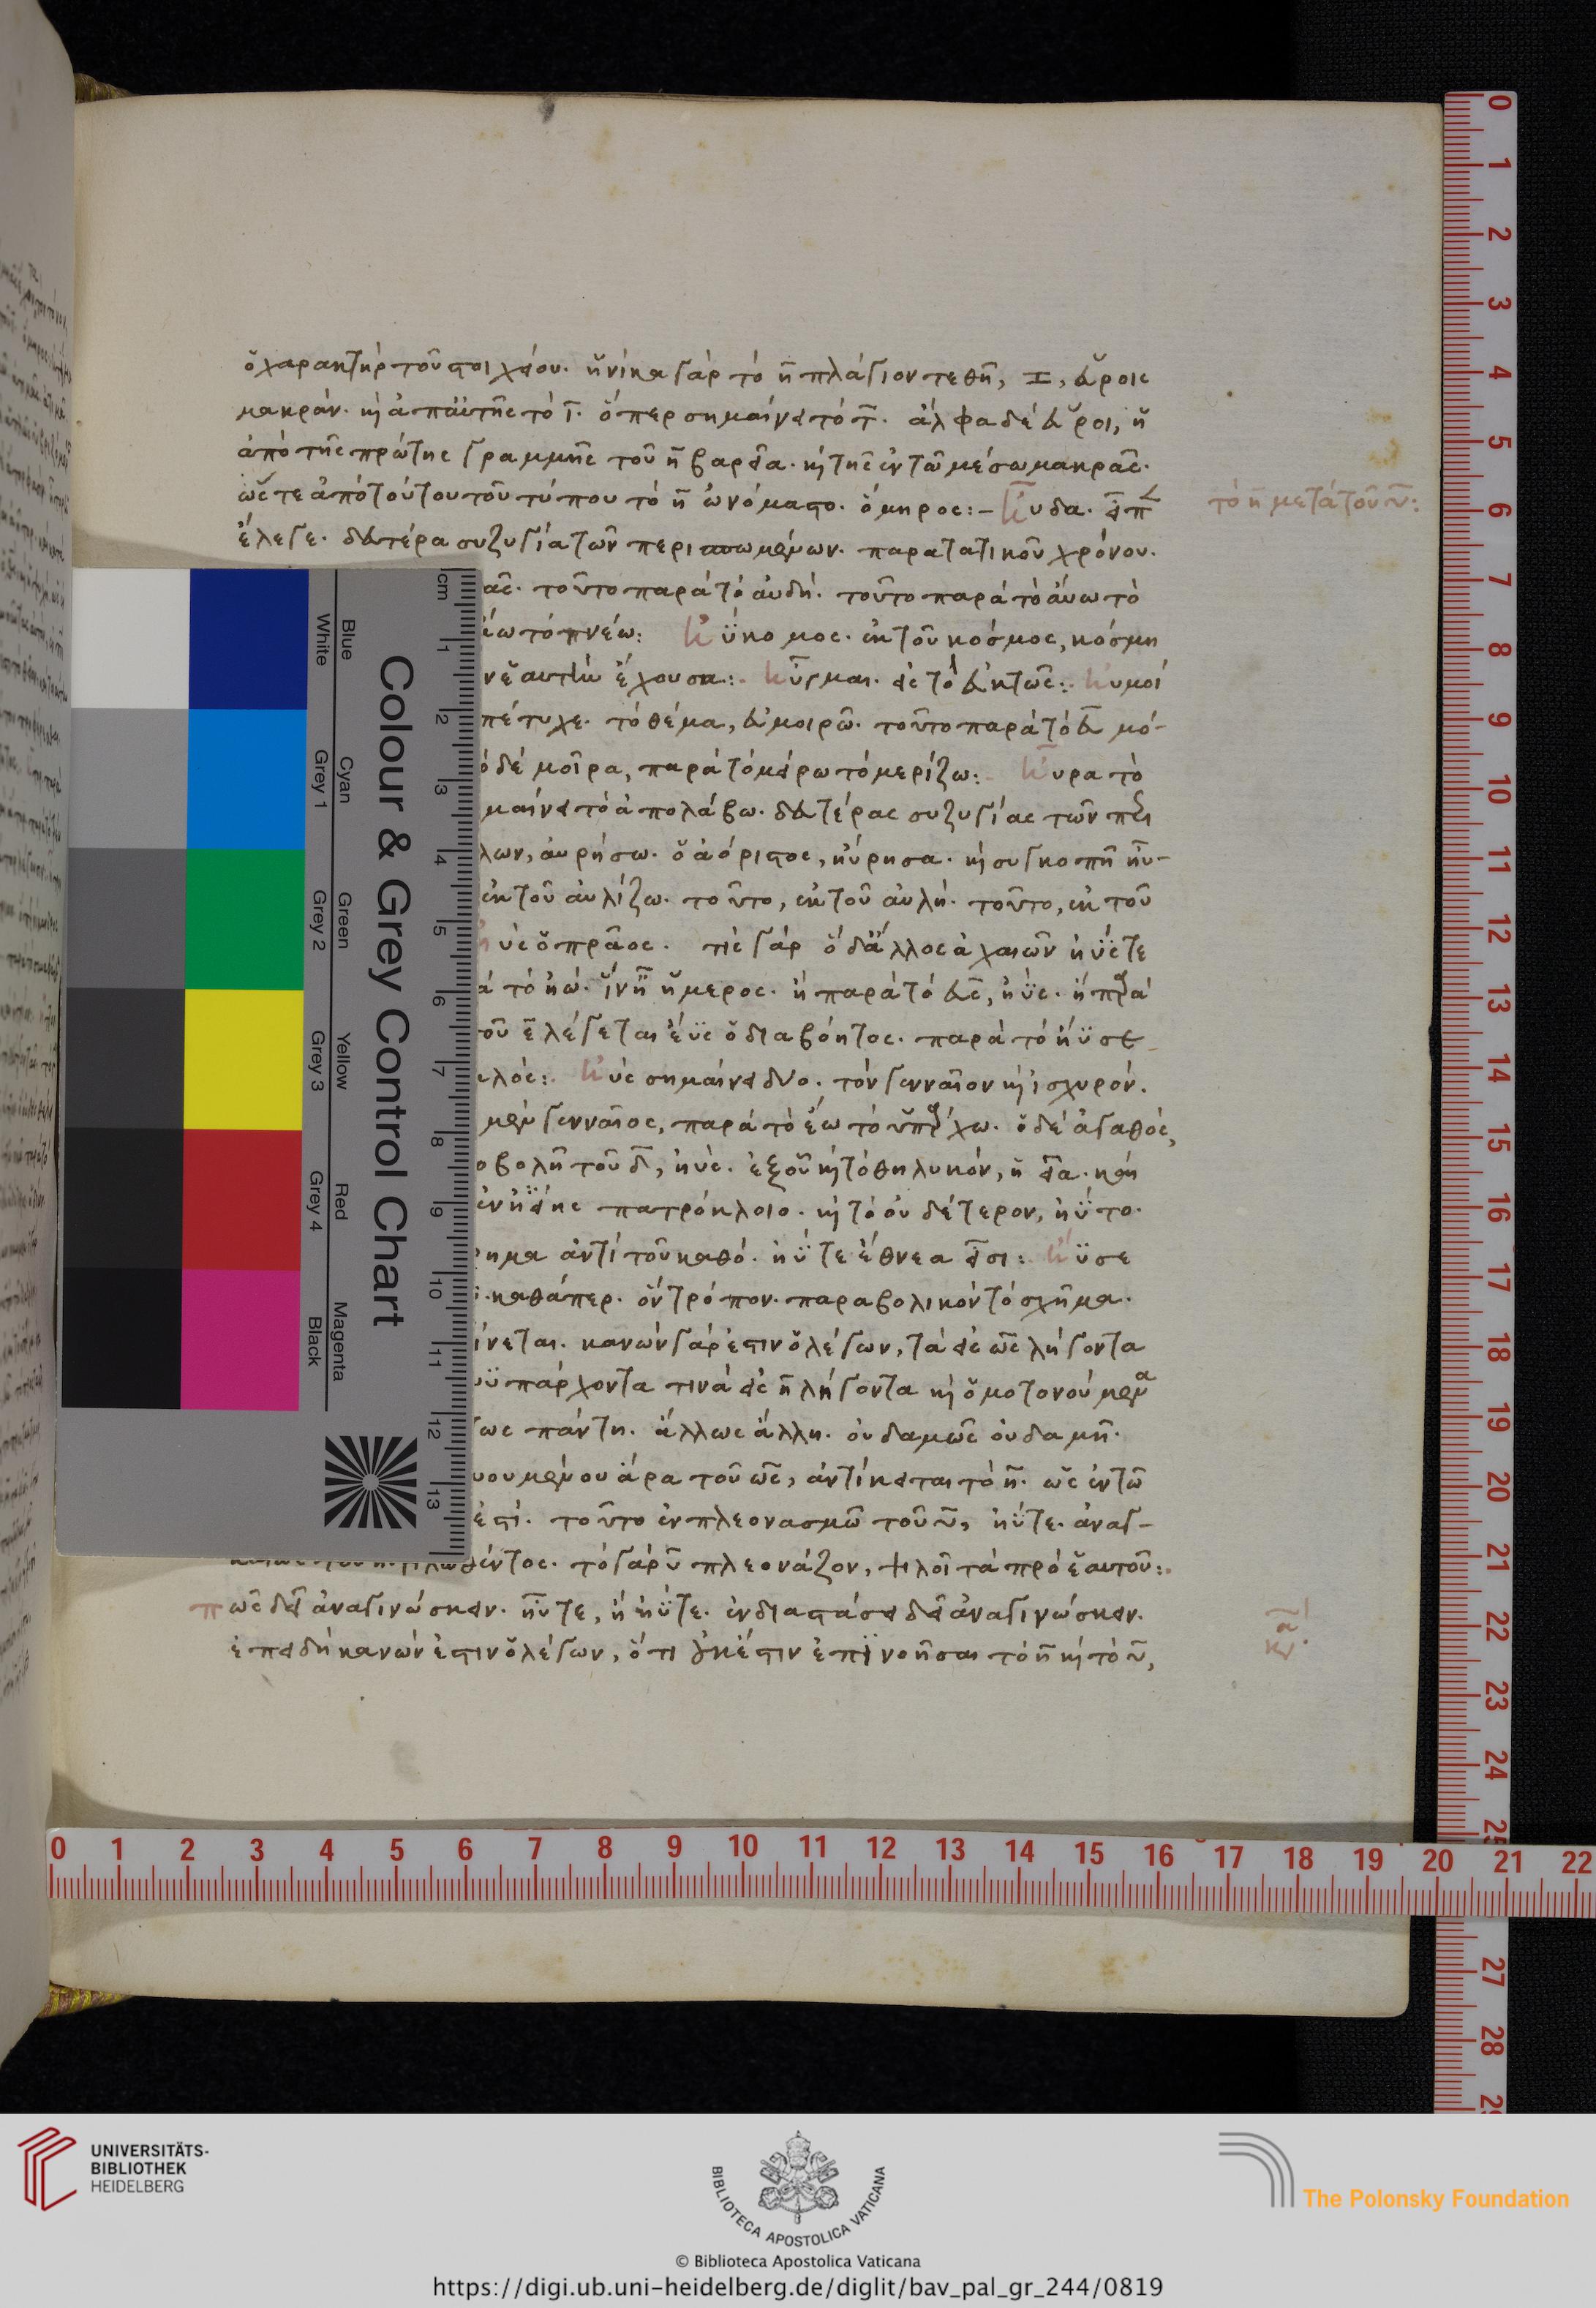 ὁ χαρακτὴρ τοῦ στοιχείου. ἡνίκα γὰρ τὸ η̄ πλάγιον τεθῆ, εὕροις
μακράν. καὶ ἀπ αὐτῆς τὸ ῑ. ὅπερ σημαίνει τὸ τ̄. ἄλφα δὲ εὕροι, ἢ
ἀπὸ τῆς πρώτης γραμμῆς τοῦ η̄ βαρεῖα. καὶ τῆς ἐν τῶ μέσω μακρᾶς.
ὥστε ἀπὸ τούτου τοῦ τύπου τὸ η̄ ὠνόμαστο. ὅμηρος:– Ηὔδα. εἶπ
ἔλεγε. δευτέρα συζυγία τῶν περισπωμένων. παρατατικοῦ χρόνου.
τὸ η̄ μετὰ τοῦ ῡ:
ᾶς. τοῦτο παρὰ τὸ αὐδή. τοῦτο παρὰ τὸ αὔω τὸ
τὸ πνέω: Ηὔκομος. ἐκ τοῦ κόσμος, κόσμη
ἑαυτὴν ἔχουσα:. Ηὖγμαι. εἰς τὸ εὐκτῶς:. Ηὐμοί
πέτυχε. τὸ θέμα, εὐμοιρῶ. τοῦτο παρὰ τὸ εὖ μό-
δὲ μοῖρα, παρὰ τὸ μείρω τὸ μερίζω: Ηὗρα τὸ
μαίνει τὸ ἀπολάβω. δευτέρας συζυγίας τῶν περι
λων, αὐρήσω. ὁ ἀόριστος, ηὔρησα. καὶ συγκοπῆ ηὖ-
ἐκ τοῦ αὐλίζω. τοῦτο, ἐκ τοῦ αὐλή. τοῦτο, ἐκ τοῦ
ὺς ὁ πρᾶος. τὶς γὰρ ὅδ ἄλλος ἀχαιῶν ἠύς τε
ὁ διαβόητος. παρὰ τὸ
λός:. Ηὺς σημαίνει δύο. τὸν γενναῖον καὶ ἰσχυρόν.
μὲν γενναῖος, παρὰ τὸ ἔω τὸ ὑπάρχω. ὁ δὲ ἀγαθός,
οβολῆ τοῦ δ̄, ἠύς. ἐξ οὗ καὶ τὸ θηλυκόν, ἡ εῖα. καὶ
ἐνηείης πατρόκλοιο. καὶ τὸ οὐδέτερον, ἠὺ τὸ.
ημα ἀντὶ τοῦ καθό. ἠύτε ἔθνεα εἶσι: Ηὖσε
καθάπερ. ὃν τρόπον. παραβολικὸν τὸ σχῆμα.
ίνεται. κανὼν γάρ ἐστιν ὁ λέγων, τὰ εἰς ως λήγοντα
ὑπάρχοντα τινὰ εἰς η̄ λήγοντα καὶ ὁμοτονούμενα
ως πάντη. ἄλλως ἄλλη. οὐδαμῶς οὐδαμῆ.
ουμένου ἄρα τοῦ ὡς, ἀντίκειται τὸ η̄. ὡς ἐν τῶ
ἐστί. τοῦτο ἐν πλεονασμῶ τοῦ ῡ, ἠύτε. ἀναγ-
θέντος. τὸ γὰρ ῡ πλεονάζον, ψιλοῖ τὰ πρὸ ἑαυτοῦ:.
πῶς δεῖ ἀναγινώσκειν. ηὖτε, ἢ ἠύτε. ἐν διαστάσει δεῖ ἀναγινώσκειν.
ἐπειδὴ κανών ἐστιν ὁ λέγων, ὅτι οὐκ ἔστιν ἐπινοῆσαι τὸ η̄ καὶ τὸ ῡ,
Colour & Grey Control Chart
Blue Cyan Green Yellow Red Magenta
White Grey 1 Grey 2 Grey 3 Grey 4 Black
cm 1 2 3 4 5 6 7 8 9 10 11 12 13
0 1 2 3 4 5 6 7 8 9 10 11 12 13 14 15 16 17 18 19 20 21 22 23 24 25 27 28 29
0 1 2 3 4 5 6 7 8 9 10 11 12 13 14 15 16 17 18 19 20 21 22
UNIVERSITÄTS-
BIBLIOTHEK
HEIDELBERG
BIBLIOTECA APOSTOLICA VATICANA
The Polonsky Foundation
© Biblioteca Apostolica Vaticana
https://digi.ub.uni-heidelberg.de/diglit/bav_pal_gr_244/0819